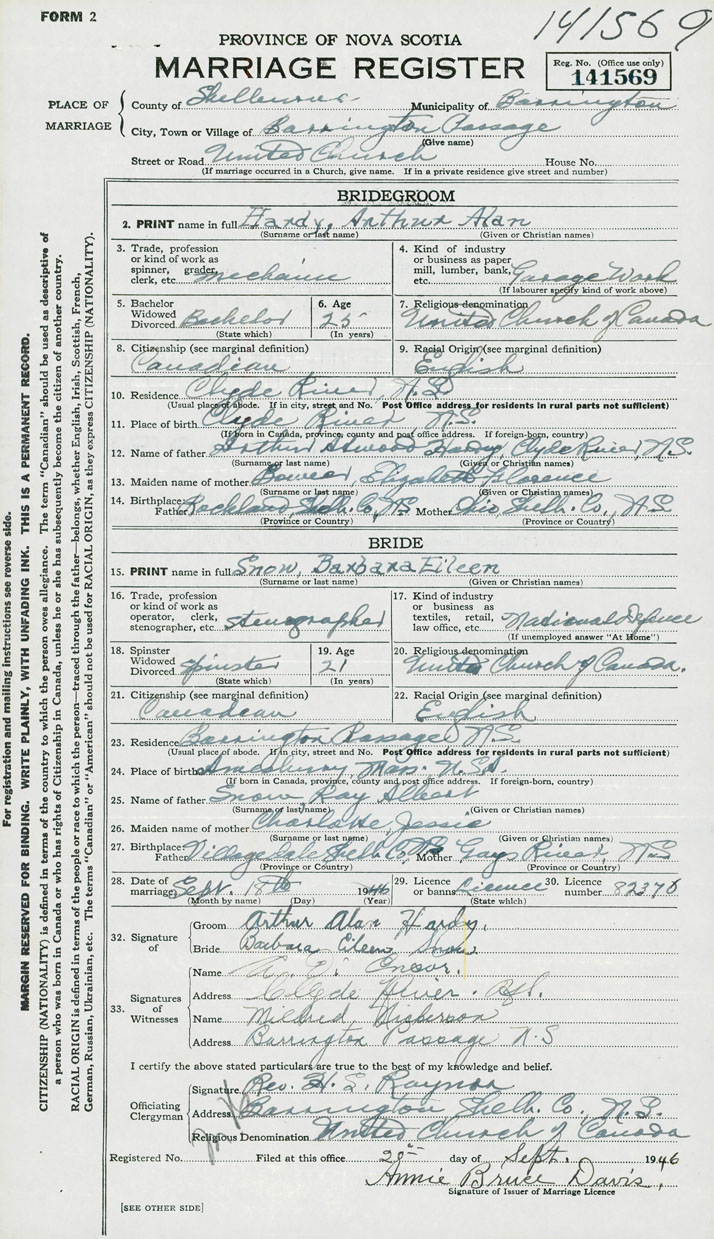 FORM 2
141569
PROVINCE OF NOVA SCOTIA
MARRIAGE REGISTER
Reg. No. (Office use only)
141569
PLACE OF MARRIAGE
County of Shelburne Municipality of Barrington
City, Town or Village of Barrington Passage
(Give name)
Street or Road United Church House No.
(If marriage occurred in a Church, give name. If in a private residence give street and number)
BRIDEGROOM
2. PRINT name in full Hardy, Arthur Alan
(Surname or last name) (Given or Christian names)
3. Trade, profession or kind of work as spinner, grader, clerk, etc. mechanic
4. Kind of industry or business as paper mill, lumber, bank, etc. Garage Work
(If labourer specify kind of work above)
5. Bachelor Widowed Divorced Bachelor
(State which)
6. Age 25
(In years)
7. Religious denomination United Church of Canada
8. Citizenship (see marginal definition) Canadian
9. Racial Origin (see marginal definition) English
10. Residence Clyde River, N.S.
(Usual place of abode. If in city, street and No. Post Office address for residents in rural parts not sufficient)
11. Place of birth Clyde River, N.S.
(If born in Canada, province, county and post office address. If foreign-born, country)
12. Name of father Arthur Atwood Hardy, Clyde River, N.S.
(Surname or last name) (Given or Christian names)
13. Maiden name of mother Elizabeth Florence
(Surname or last name) (Given or Christian names)
14. Birthplace: Father Rockland, Shelb. Co., N.S. Mother Ohio, Shelb. Co., N.S.
(Province or Country) (Province or Country)
BRIDE
15. PRINT name in full Snow, Barbara Eileen
(Surname or last name) (Given or Christian names)
16. Trade, profession or kind of work as operator, clerk, stenographer, etc. stenographer
17. Kind of industry or business as textiles, retail, law office, etc. National Defence
(If unemployed answer "At Home")
18. Spinster Widowed Divorced Spinster
(State which)
19. Age 21
(In years)
20. Religious denomination United Church of Canada.
21. Citizenship (see marginal definition) Canadian
22. Racial Origin (see marginal definition) English
23. Residence Barrington Passage, N.S.
(Usual place of abode. If in city, street and No. Post Office address for residents in rural parts not sufficient)
24. Place of birth Amesbury, Mass. U.S.A.
(If born in Canada, province, county and post office address. If foreign-born, country)
25. Name of father Snow, Ray Albert
(Surname or last name) (Given or Christian names)
26. Maiden name of mother Charlotte, Jessie
(Surname or last name) (Given or Christian names)
27. Birthplace: Father Shelb. Co. N.S. Mother Gays River, N.S.
(Province or Country) (Province or Country)
28. Date of marriage Sept. 18th 1946
(Month by name) (Day) (Year)
29. Licence or banns Licence
(State which)
30. Licence number 82376
32. Signature of
Groom Arthur Alan Hardy.
Bride Barbara Eileen Snow
33. Signatures of Witnesses
Name
Address Clyde River.
Name Mildred Nickerson
Address Barrington Passage N.S
I certify the above stated particulars are true to the best of my knowledge and belief.
Officiating Clergyman
Signature Rev. H. L. Raynor
Address Barrington Shelb. Co. N.S.
Religious Denomination United Church of Canada
Registered No. Filed at this office 20th day of Sept. 1946
Annie Bruce Davis,
Signature of Issuer of Marriage Licence
[SEE OTHER SIDE]
For registration and mailing instructions see reverse side.
MARGIN RESERVED FOR BINDING. WRITE PLAINLY, WITH UNFADING INK. THIS IS A PERMANENT RECORD.
CITIZENSHIP (NATIONALITY) is defined in terms of the country to which the person owes allegiance. The term "Canadian" should be used as descriptive of
a person who was born in Canada or who has rights of Citizenship in Canada, unless he or she has subsequently become the citizen of another country.
RACIAL ORIGIN is defined in terms of the people or race to which the person—traced through the father—belongs, whether English, Irish, Scottish, French,
German, Russian, Ukrainian, etc. The terms "Canadian" or "American" should not be used for RACIAL ORIGIN, as they express CITIZENSHIP (NATIONALITY).